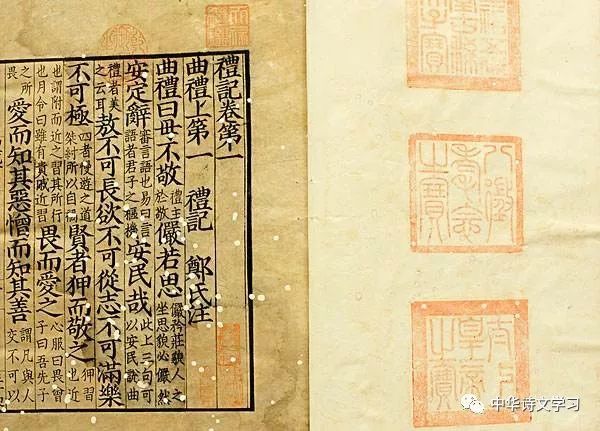 禮記卷第一
曲禮上第一 禮記 鄭氏注
曲禮曰毋不敬禮主於敬儼若思儼矜莊貌人之坐思貌必儼然
安定辭審言語也易曰言語者君子之樞機安民哉此上三句可以安民說曲
禮者美之云耳敖不可長欲不可從志不可滿樂
不可極四者慢遊之道桀紂所以自禍賢者狎而敬之狎習也近
也謂附而近之習其所行也月令曰雖有貴戚近習畏而愛之心服曰畏曾子曰吾先子
之所畏愛而知其惡憎而知其善謂凡與人交不可以
八徵耄念之寶
太上皇帝之寶
中华诗文学习